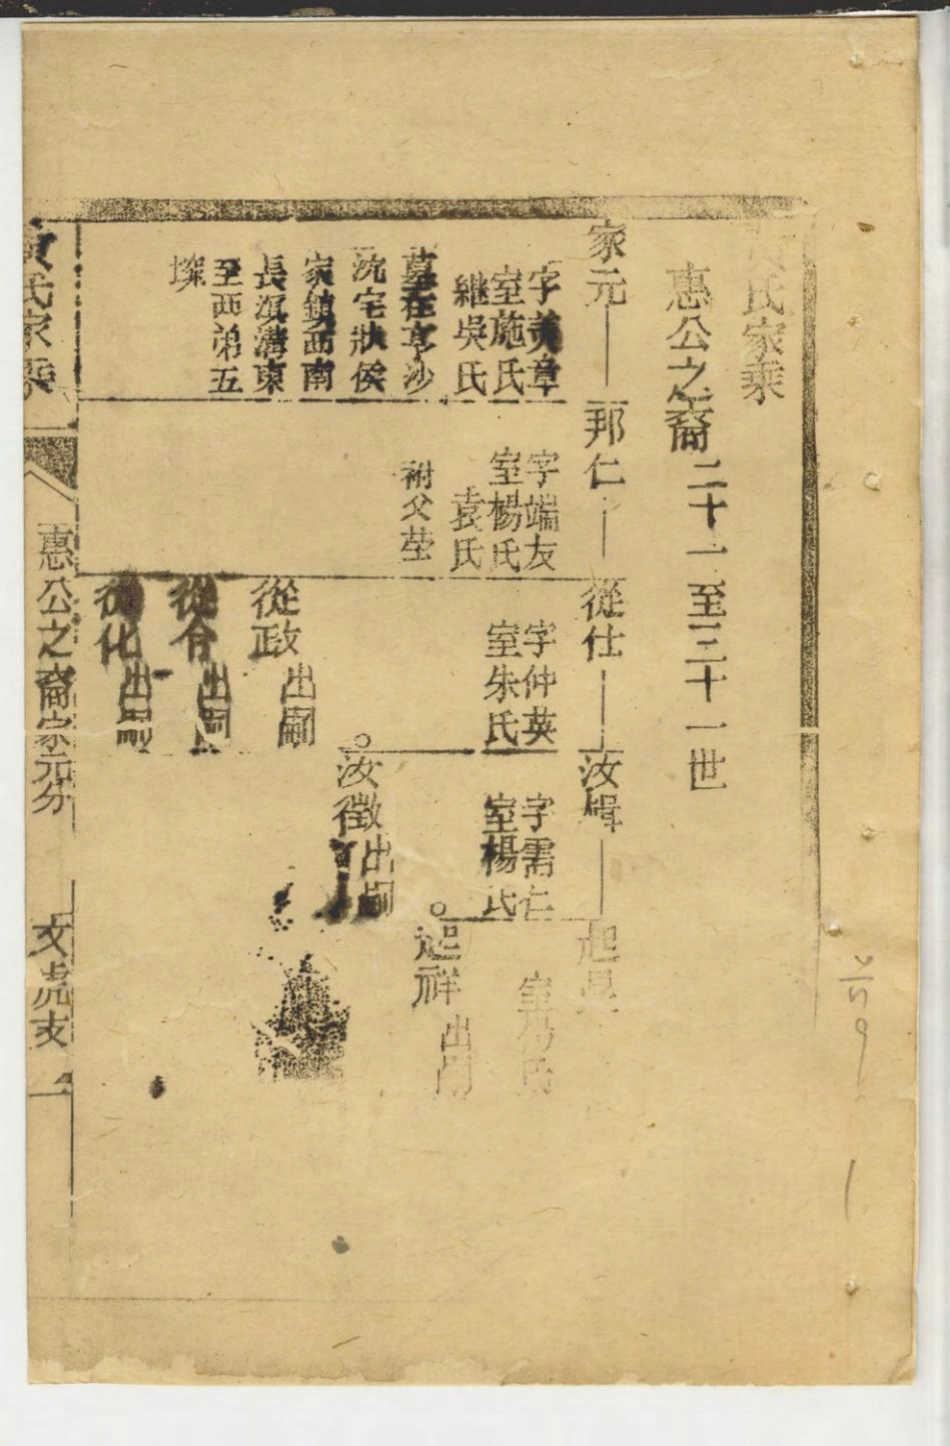 氏家乘
惠公之裔二十一至三十一世
家元
字黄章
室施氏
繼吳氏
墓在亨沙
沈宅狀侯
家鎮西南
長溟溝東
至西弟五
塛
邦仁
字端友
室楊氏
袁氏
祔父塋
從仕
字仲英
室朱氏
從政出嗣
從令出嗣
從化出嗣
汝楫
字需仁
室楊氏
汝徵出嗣
起
室 氏
起祥出嗣
氏家乘
惠公之裔家元分
文虎支
一